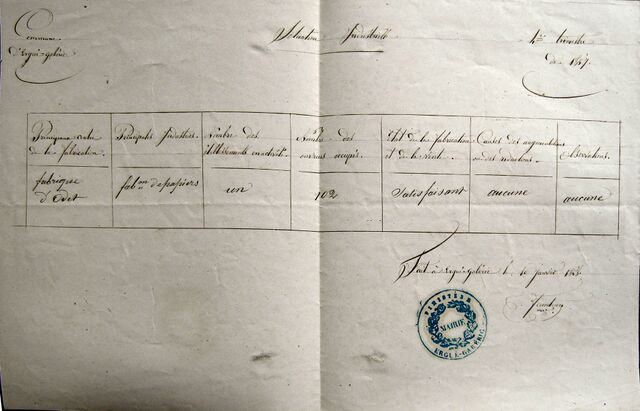 Commune
d'Ergué-gabéric
Situation Industrielle
4me trimestre
de 18
Principaux centres
de la fabrication.
Principales Industries.
Nombre des
établissements en activité.
Nombre des
ouvriers occupés.
Etat de la fabrication
et de la vente.
Causes des augmentations
ou des réductions.
Observations.
fabrique
d'Odet
fabon de papiers
un
102
Satisfaisant
aucune
aucune
Fait à Ergué-gabéric le 10 janvier 18
MAIRIE
ERGUÉ-GABÉRIC